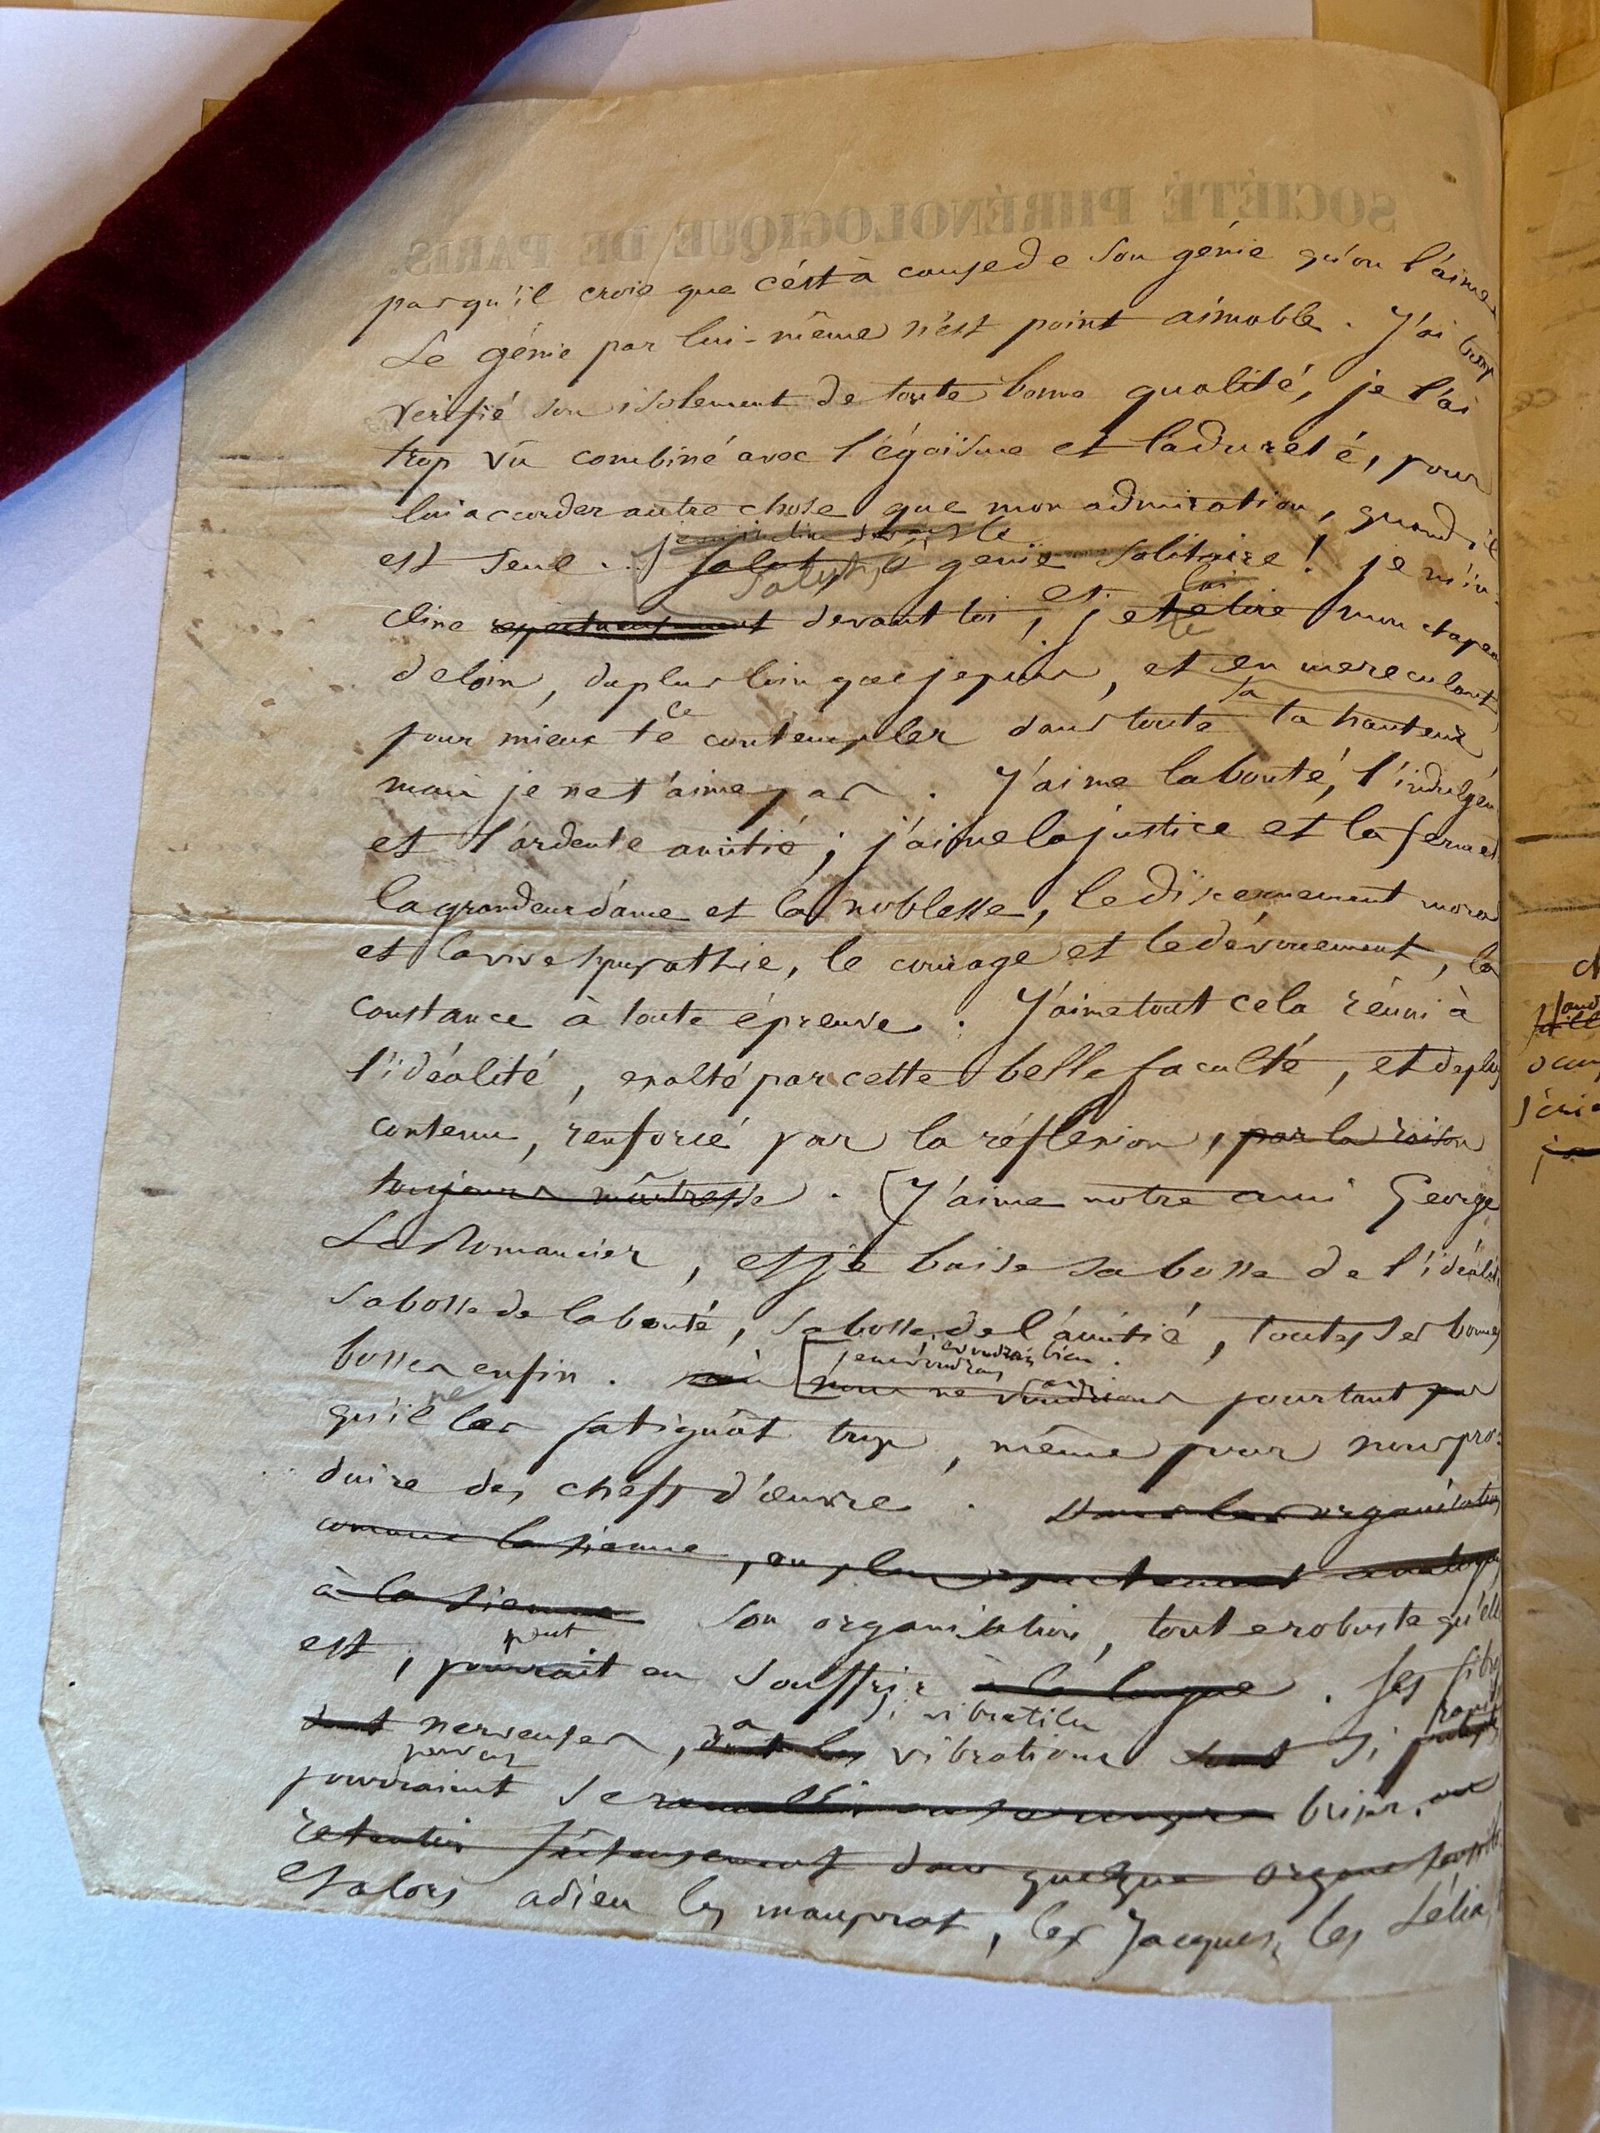 SOCIÉTÉ PHRÉNOLOGIQUE DE PARIS.
pas qu'il croie que c'est à cause de son génie qu'on l'aime
Le génie par lui-même n'est point aimable. J'ai trop
vérifié son isolement de toute bonne qualité, je l'ai
trop vû combiné avec l'égoisme et la dureté, pour
lui accorder autre chose que mon admiration, quand il
est seul. Salut, ô génie solitaire! je m'in-
et lui
cline respectueusement devant toi, je te tire mon chapeau
te
de loin, du plus loin que je puis, et en me reculant
le sa
pour mieux te contempler dans toute ta hauteur
mais je ne t'aime pas. J'aime la bonté, l'indulgen
et l'ardente amitié; j'aime la justice et la fermet
la grandeur d'âme et la noblesse, le discernement moral
et la vive sympathie, le courage et le dévouement, la
constance à toute épreuve. J'aime tout cela réuni à
l'idéalité, exalté par cette belle faculté, et de plus
contenu, renforcé par la réflexion, par la raison
toujours maîtresse. (J'aime notre ami George
Le Romancier, et je baise sa bosse de l'idéalité
sa bosse de la bonté, sa bosse de l'amitié, toutes ses bonnes
bosses enfin. mais nous ne voudrions pourtant pas
ne
qu'il les fatiguât trop, même pour nous pro-
duire des chefs d'œuvre. Dans les organisations
comme la sienne, ou plus exactement analogues
à la sienne Son organisation, toute robuste qu'elle
peut
est, pourrait en souffrir à la longue. Ses fibres
si vibratiles
dont nerveuses, dont les vibrations sont si
peuvent
pourraient se briser, ou
retentir fâcheusement dans quelque organe
et alors adieu les mauprat, les Jacques, les Lélia,